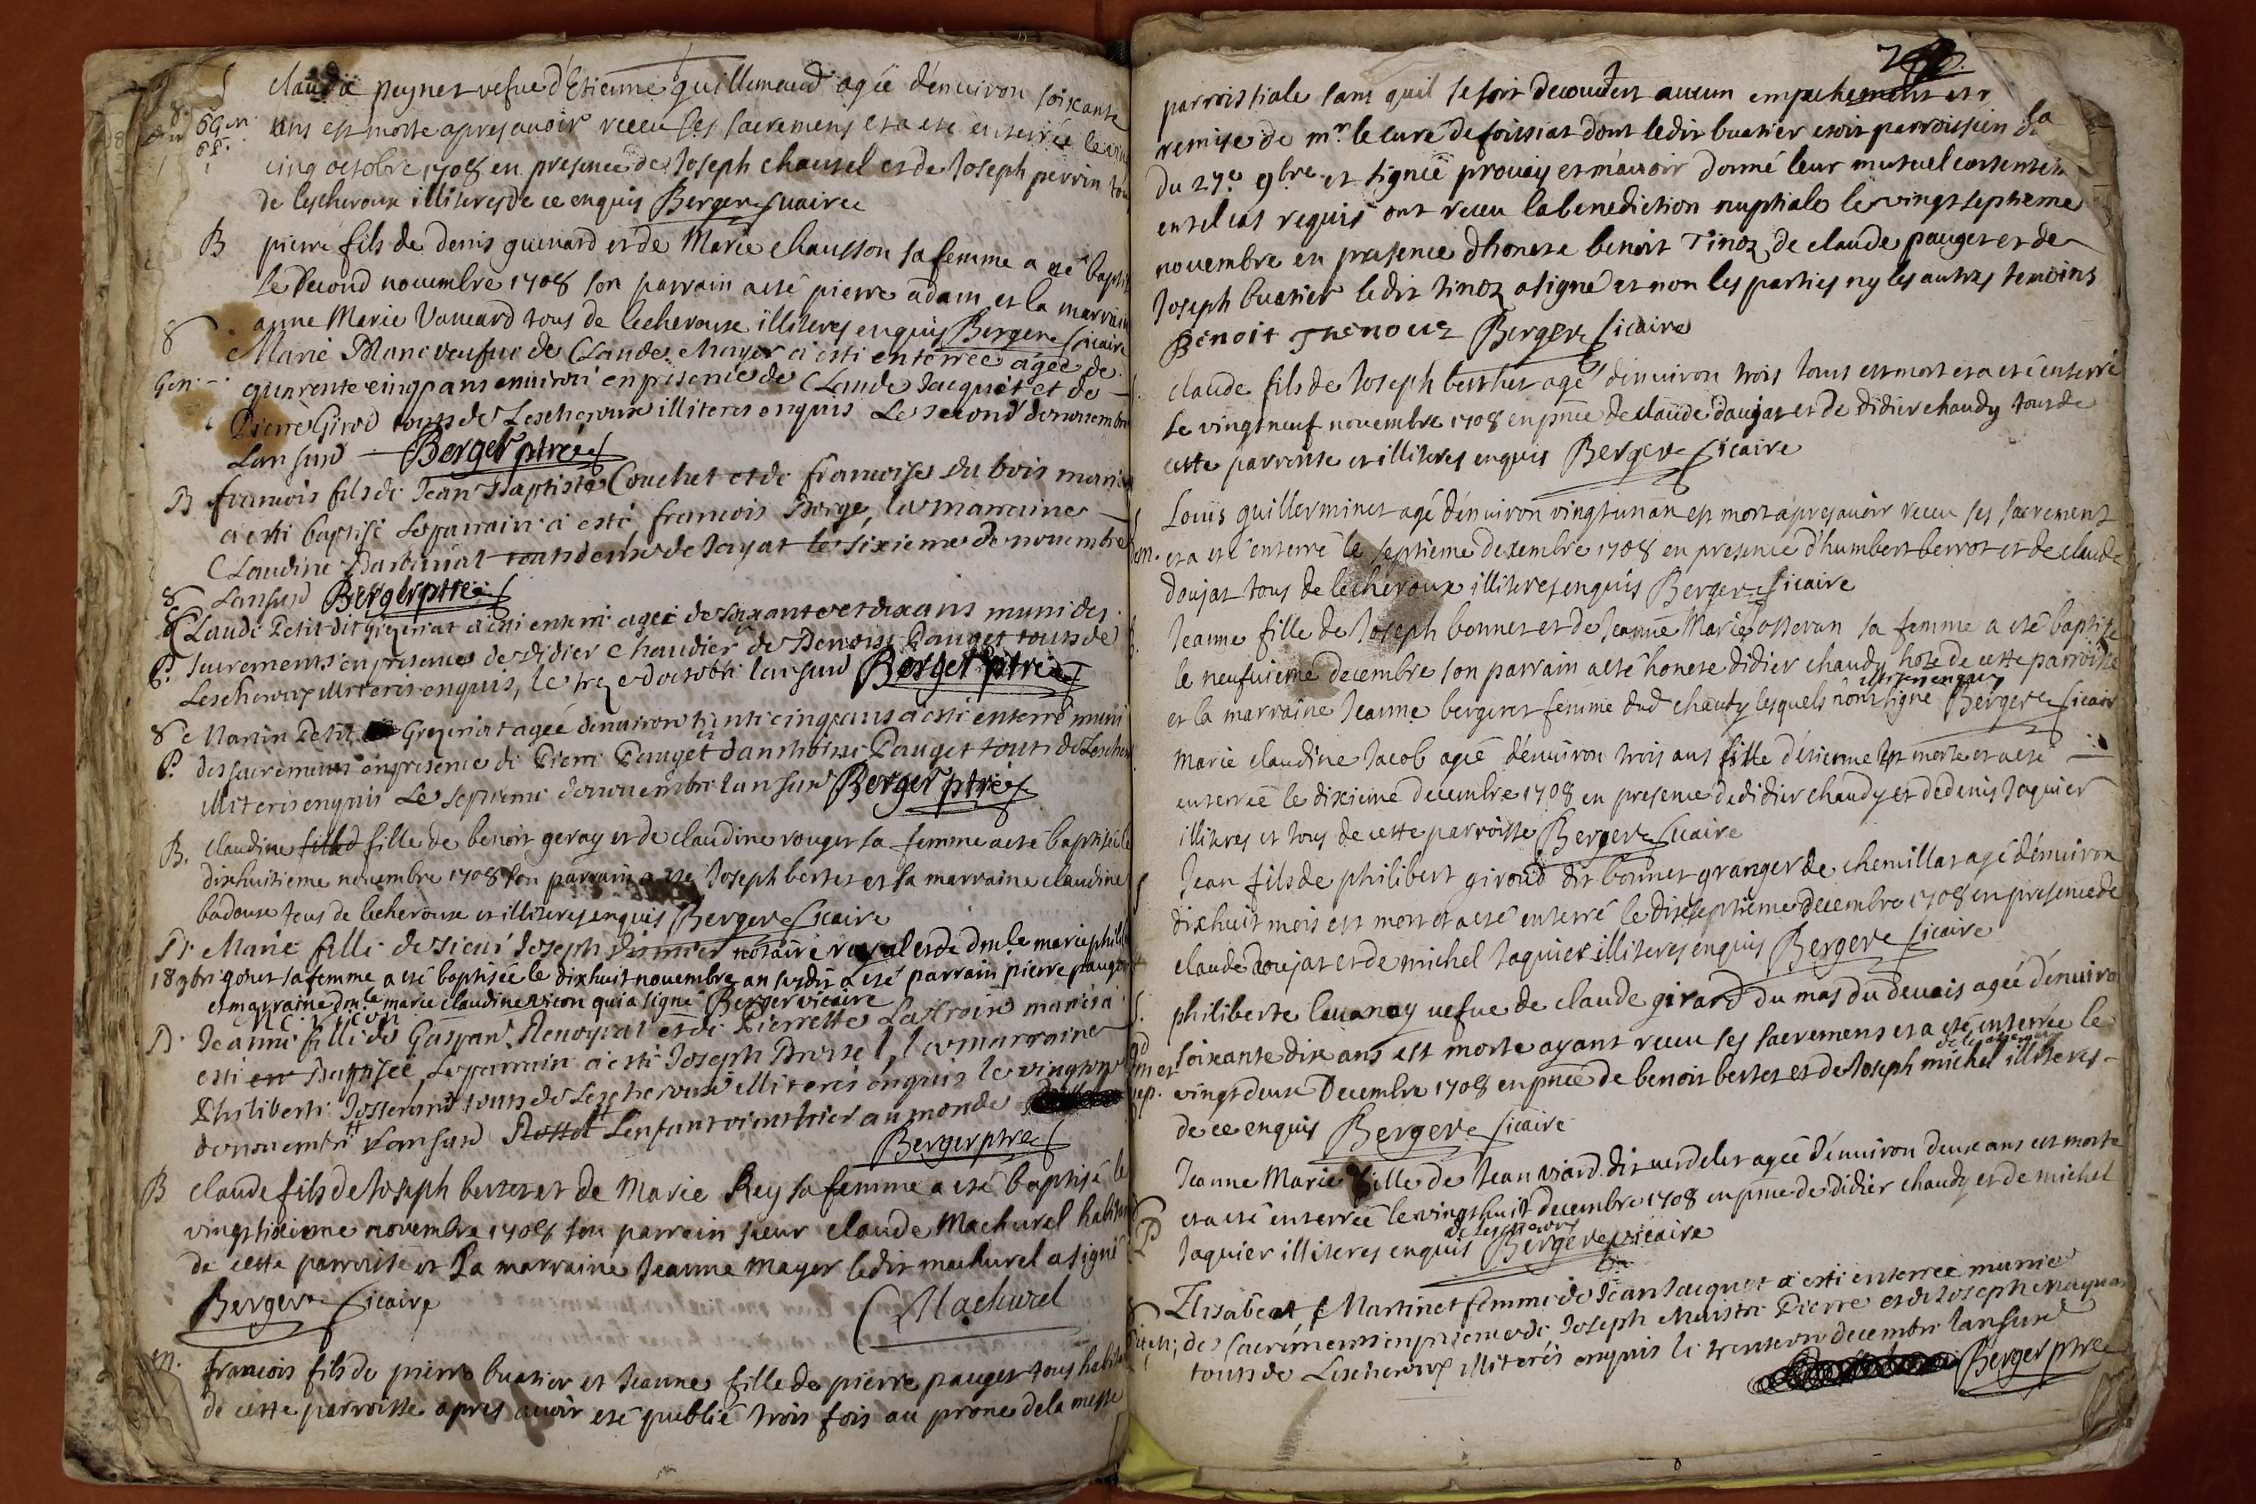 claudie peynet vefue d'Etienne guillemaud agée d'enuiron soixante
ans est morte apres auoir receu ses sacremens et a eté enterrée le vin
cinq octobre 1708 en presence de Joseph chanel et de Joseph perrin tou
de lescheroux illiteres de ce enquis Berger vicaire
B pierre fils de denis guenard et de Marie chausson sa femme a eté baptis
le second nouembre 1708 son parrain a eté pierre adam et la marraine
anne Marie Vameard tous de lecheroux illiteres enquis Berger vicaire
Marie veufue de Claude Mayer a esté enterrée agée de
Gen. quarente cinq ans enuiron en presence de Claude Jacquet et de
Pierre Girod touts de Lescheroux illiteres enquis Le second de nouembre
Lan susd Berger ptre
B francois fils de Jean Baptiste Couchet et de francoise du bois mariés
a esté baptisé Le parrain a esté francois Borge, la marraine
Claudine Barbariat touts deux de Jayat le sixieme de nouembre
Lan susd Berger ptre
Claude Petit dit grezeriat a esté enterré agée de soixante et dix ans muni des
P. sacrements en presence de Didier Chaudier & de Benoist Pauget touts de
Lescheroux illiteres enquis, le treze d'octobre lan susd Berger ptre
Martin Petit Grezeriat agée denuiron trente cinq ans a esté enterré muni
P. des sacrements en presence de Pierre Pauget & danthoine Pauget touts de Lescher
illiteres enquis Le septieme de nouembre lan susd Berger ptre
B. claudine fille de benoit geray et de claudine rouget sa femme a eté baptisée le
dixhuitieme nouembre 1708 son parrain a eté Joseph bertet et sa marraine claudine
badoux tous de lecheroux et illiteres enquis Berger vicaire
B. Marie fille de sieur Joseph notaire royal et de dmle marie phil
18 9bre goret sa femme a eté baptisée le dixhuit nouembre an susdit a eté parrain pierre pauget
et marraine dmle marie claudine vicon qui a signé Berger vicaire
m c vicon
B. Jeanne fille de Gaspard Renoyrat et de Pierrette Lacroix mariés a
esté Baptisée, Le parrain a esté Joseph Brissel, la marraine
Philiberte Josserand touts de Lescheroux illiteres enquis le vingt
de nouembre Lan susd Lenfant vient hier au monde
Berger ptre
B claude fils de Joseph bertet et de Marie Rey sa femme a eté baptisé le
vingtsixieme nouembre 1708 son parrain sieur claude Machurel habitant
de cette parroisse et La marraine Jeanne mayer ledit machurel a signé
Berger vicaire CMachurel
m. francois fils de pierre buatier et Jeanne fille de pierre pauget tous habita
de cette parroisse apres auoir eté publié trois fois au prone de la messe
parroissiale sans quil se soit decouuert aucun empechement et
remise de mr. le curé de foissiat dont ledit buatier etoit parroissien
du 27e 9bre et signée prouay et m'auoir donné leur mutuel consentem
en tel cas requis ont receu la benediction nuptiale le vingt septieme
nouembre en presence dhonete benoit Tinoz de claude pauget et de
Joseph buatier ledit tinoz a signé et non les parties ny les autres temoins
Benoit Thenouz Berger vicaire
claude fils de Joseph berthet agé denuiron trois ans est mort et a eté enterré
le vingt neuf nouembre 1708 en pnce de claude daujat et de didier chaudy tous de
cette parroisse et illiteres enquis Berger vicaire
Louis guillerminet agé d'enuiron vingt un an est mort apres auoir receu ses sacrement
et a eté enterré le septieme decembre 1708 en presence d'humbert berrot et de claude
doujat tous de lecheroux illiteres enquis Berger vicaire
Jeanne fille de Joseph bonnet et de Jeanne Marie osseran sa femme a eté baptisée
le neufuieme decembre son parrain a eté honete didier chaudy hote de cette parroisse
et la marraine Jeanne bergeret femme dud chaudy lesquels n'ont signé illiteres enquis Berger vicaire
Marie claudine Jacob agée d'enuiron trois ans fille d'étienne est morte et a eté
enterrée le dixieme decembre 1708 en presence de didier chaudy et de denis Jaquier
illiteres et tous de cette parroisse Berger vicaire
Jean fils de philibert giroud dit bonnet granger de chemillat agé d'enuiron
dixhuit mois est mort et a eté enterré le dixseptieme decembre 1708 en presence de
claude doujat et de michel Jaquier illiteres enquis Berger vicaire
philiberte leuanay vefue de claude girard du mas du deuais agée d'enuiron
soixante dix ans est morte ayant receu ses sacremens et a eté enterrée le
vingtdeux Decembre 1708 en pnce de benoit bertet et de Joseph michel illiteres
de ce enquis Berger vicaire
Jeanne Marie fille de Jean viard dit verdelet agée d'enuiron deux ans est morte
et a eté enterrée le vingthuit decembre 1708 en pnce de didier chaudy et de michel
Jaquier illiteres enquis de lescheroux Berger vicaire
Elisabeat Martinet femme de Jean Jacquet a esté enterrée munie
des sacréments en presence de Joseph Maistre Pierre et de Joseph
touts de Lescheroux illiterés enquis le trenteun decembre lan susd
Berger ptre